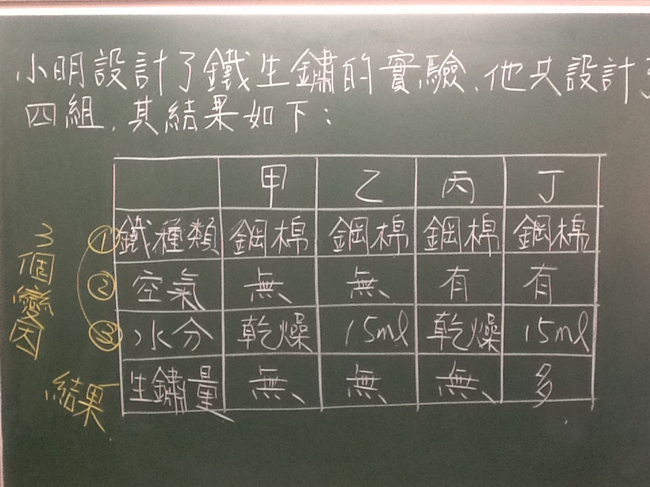 小明設計了鐵生鏽的實驗,他共設計了
四組,其結果如下:
甲 乙 丙 丁
3個變因
① 鐵種類 鋼棉 鋼棉 鋼棉 鋼棉
② 空氣 無 無 有 有
③ 水分 乾燥 15ml 乾燥 15ml
結果 生鏽量 無 無 無 多